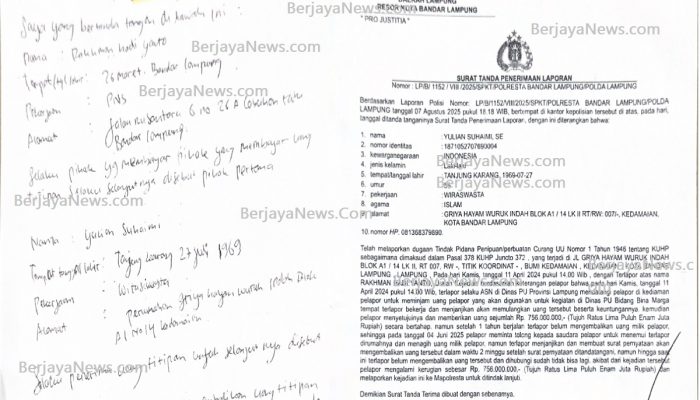 Saya yang bertanda tangan di bawah ini :
Nama : Rakhman Hadi Yanto
Tempat/tgl lahir : 26 Maret. Bandar Lampung
Pekerjaan : PNS
Alamat : Jalan Nusantara 6 no 26 A
Bandar Lampung.
Selaku pihak yg membayar
uang
selaku selanjutnya disebut pihak pertama
Nama : Yulian Suhaimi
Tempat tanggal lahir : Tanjung karang 27 juli 1969
Pekerjaan : Wiraswasta
Alamat : perumahan griya hayam wuruk indah Blok
A1 no 14 kedamaian.
Selaku penerima uang titipan untuk selanjutnya disebut
uang titipan
RESOR KOTA BANDAR LAMPUNG
"PRO JUSTITIA"
SURAT TANDA PENERIMAAN LAPORAN
Nomor : LP/B/ 1152 / VIII /2025/SPKT/POLRESTA BANDAR LAMPUNG/POLDA LAMPUNG
Berdasarkan Laporan Polisi Nomor: LP/B/1152/VIII/2025/SPKT/POLRESTA BANDAR LAMPUNG/POLDA
LAMPUNG tanggal 07 Agustus 2025 pukul 18.18 WIB, bertempat di kantor kepolisian tersebut di atas, pada hari,
tanggal ditanda tanganinya Surat Tanda Penerimaan Laporan, dengan ini diterangkan bahwa:
1. nama : YULIAN SUHAIMI, SE
2. nomor identitas : 1871052707690004
3. kewarganegaraan : INDONESIA
4. jenis kelamin : Laki-laki
5. tempat/tanggal lahir : TANJUNG KARANG, 1969-07-27
6. umur :
7. pekerjaan : WIRASWASTA
8. agama : ISLAM
9. alamat : GRIYA HAYAM WURUK INDAH BLOK A1 / 14 LK II RT/RW: 007/-, KEDAMAIAN,
KOTA BANDAR LAMPUNG
10. nomor HP. 081368379690
Telah melaporkan dugaan Tindak Pidana Penipuan/perbuatan Curang UU Nomor 1 Tahun 1946 tentang KUHP
sebagaimana dimaksud dalam Pasal 378 KUHP Juncto 372 , yang terjadi di JL GRIYA HAYAM WURUK INDAH
BLOK A1 / 14 LK II, RT 007, RW -, TITIK KOORDINAT - , BUMI KEDAMAIAN , KEDAMAIAN
LAMPUNG , LAMPUNG , Pada hari Kamis, tanggal 11 April 2024 pukul 14.00 WIB, terlapor atas nama
RAKHMAN HADI YANTO, Dalam laporan berdasarkan keterangan pelapor bahwa pada hari Kamis, tanggal 11
April 2024 pukul 14.00 Wib, terlapor selaku ASN di Dinas PU Provinsi Lampung mendatangi pelapor di kediaman
pelapor untuk meminjam uang pelapor yang akan digunakan untuk kegiatan di Dinas PU Bidang Bina Marga
tempat terlapor bekerja dan menjanjikan akan memulangkan uang tersebut beserta keuntungannya, kemudian
pelapor menyetujuinya dan memberikan uang sejumlah Rp. 756.000.000,- (Tujuh Ratus Lima Puluh Enam Juta
Rupiah) secara bertahap, namun setelah 1 tahun berjalan terlapor belum mengembalikan uang milik pelapor,
sehingga pada tanggal 04 Juni 2025 pelapor meminta tolong kepada saudara pelapor untuk menemui terlapor
dirumahnya dan menagih uang milik pelapor, namun terlapor menjanjikan dan membuat surat pernyataan akan
mengembalikan uang tersebut dalam waktu 2 minggu setelah surat pernyataan ditandatangani, namun hingga saat
ini terlapor belum mengembalikan uang tersebut dan dihubungi sudah tidak bisa lagi, akibat dari kejadian tersebut
pelapor mengalami kerugian sebesar Rp. 756.000.000,- (Tujuh Ratus Lima Puluh Enam Juta Rupiah) dan
melaporkan kejadian ini ke Mapolresta untuk ditindak lanjuti.
Demikian Surat Tanda Terima dibuat dengan sebenarnya.
BerjayaNews.com
BerjayaNews.com
BerjayaNews.com
BerjayaNews.com
BerjayaNews.Com
BerjayaNews.com
BerjayaNews.com